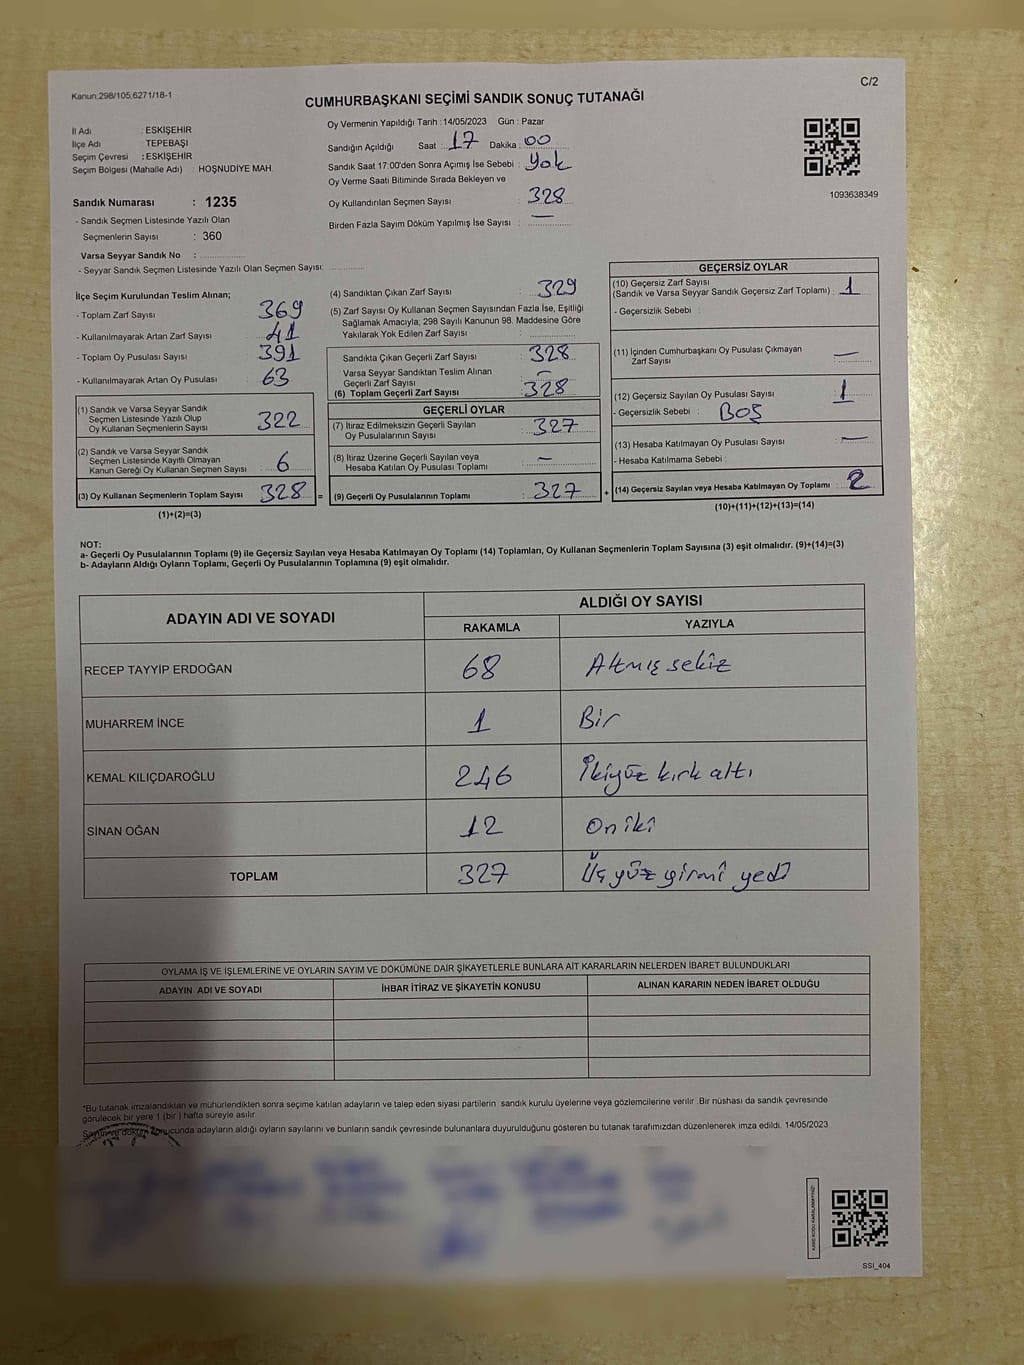 Kanun:298/105;6271/18-1
C/2
CUMHURBAŞKANI SEÇİMİ SANDIK SONUÇ TUTANAĞI
İl Adı : ESKIŞEHIR
İlçe Adı : TEPEBAŞI
Seçim Çevresi : ESKIŞEHIR
Seçim Bölgesi (Mahalle Adı) : HOŞNUDİYE MAH.
Sandık Numarası : 1235
- Sandık Seçmen Listesinde Yazılı Olan
Seçmenlerin Sayısı : 360
Varsa Seyyar Sandık No :
- Seyyar Sandık Seçmen Listesinde Yazılı Olan Seçmen Sayısı:
Oy Vermenin Yapıldığı Tarih :14/05/2023 Gün : Pazar
Sandığın Açıldığı Saat : 17 Dakika : 00
Sandık Saat 17:00'den Sonra Açımış İse Sebebi : Yok
Oy Verme Saati Bitiminde Sırada Bekleyen ve
Oy Kullandırılan Seçmen Sayısı : 328
Birden Fazla Sayım Döküm Yapılmış İse Sayısı : —
1093638349
İlçe Seçim Kurulundan Teslim Alınan;
- Toplam Zarf Sayısı : 369
- Kullanılmayarak Artan Zarf Sayısı : 41
- Toplam Oy Pusulası Sayısı : 391
- Kullanılmayarak Artan Oy Pusulası : 63
(1) Sandık ve Varsa Seyyar Sandık
Seçmen Listesinde Yazılı Olup
Oy Kullanan Seçmenlerin Sayısı : 322
(2) Sandık ve Varsa Seyyar Sandık
Seçmen Listesinde Kayıtlı Olmayan
Kanun Gereği Oy Kullanan Seçmen Sayısı : 6
(3) Oy Kullanan Seçmenlerin Toplam Sayısı : 328
(1)+(2)=(3)
(4) Sandıktan Çıkan Zarf Sayısı : 329
(5) Zarf Sayısı Oy Kullanan Seçmen Sayısından Fazla İse, Eşitliği
Sağlamak Amacıyla; 298 Sayılı Kanunun 98. Maddesine Göre
Yakılarak Yok Edilen Zarf Sayısı :
Sandıkta Çıkan Geçerli Zarf Sayısı : 328
Varsa Seyyar Sandıktan Teslim Alınan
Geçerli Zarf Sayısı : —
(6) Toplam Geçerli Zarf Sayısı : 328
GEÇERLİ OYLAR
(7) İtiraz Edilmeksizin Geçerli Sayılan
Oy Pusulalarının Sayısı : 327
(8) İtiraz Üzerine Geçerli Sayılan veya
Hesaba Katılan Oy Pusulası Toplamı : —
= (9) Geçerli Oy Pusulalarının Toplamı : 327
GEÇERSİZ OYLAR
(10) Geçersiz Zarf Sayısı
(Sandık ve Varsa Seyyar Sandık Geçersiz Zarf Toplamı) : 1
- Geçersizlik Sebebi :
(11) İçinden Cumhurbaşkanı Oy Pusulası Çıkmayan
Zarf Sayısı : —
(12) Geçersiz Sayılan Oy Pusulası Sayısı : 1
- Geçersizlik Sebebi : BOŞ
(13) Hesaba Katılmayan Oy Pusulası Sayısı : —
- Hesaba Katılmama Sebebi :
+ (14) Geçersiz Sayılan veya Hesaba Katılmayan Oy Toplamı : 2
(10)+(11)+(12)+(13)=(14)
NOT:
a- Geçerli Oy Pusulalarının Toplamı (9) ile Geçersiz Sayılan veya Hesaba Katılmayan Oy Toplamı (14) Toplamları, Oy Kullanan Seçmenlerin Toplam Sayısına (3) eşit olmalıdır. (9)+(14)=(3)
b- Adayların Aldığı Oyların Toplamı, Geçerli Oy Pusulalarının Toplamına (9) eşit olmalıdır.
ADAYIN ADI VE SOYADI
ALDIĞI OY SAYISI
RAKAMLA YAZIYLA
RECEP TAYYİP ERDOĞAN 68 Altmış sekiz
MUHARREM İNCE 1 Bir
KEMAL KILIÇDAROĞLU 246 İkiyüz kırk altı
SİNAN OĞAN 12 On iki
TOPLAM 327 Üç yüz yirmi yedi
OYLAMA İŞ VE İŞLEMLERİNE VE OYLARIN SAYIM VE DÖKÜMÜNE DAİR ŞİKAYETLERLE BUNLARA AİT KARARLARIN NELERDEN İBARET BULUNDUKLARI
ADAYIN ADI VE SOYADI İHBAR İTİRAZ VE ŞİKAYETİN KONUSU ALINAN KARARIN NEDEN İBARET OLDUĞU
*Bu tutanak imzalandıktan ve mühürlendikten sonra seçime katılan adayların ve talep eden siyasi partilerin sandık kurulu üyelerine veya gözlemcilerine verilir .Bir nüshası da sandık çevresinde
görülecek bir yere 1 (bir ) hafta süreyle asılır.
Sayım ve döküm sonucunda adayların aldığı oyların sayılarını ve bunların sandık çevresinde bulunanlara duyurulduğunu gösteren bu tutanak tarafımızdan düzenlenerek imza edildi. 14/05/2023
SSI_404